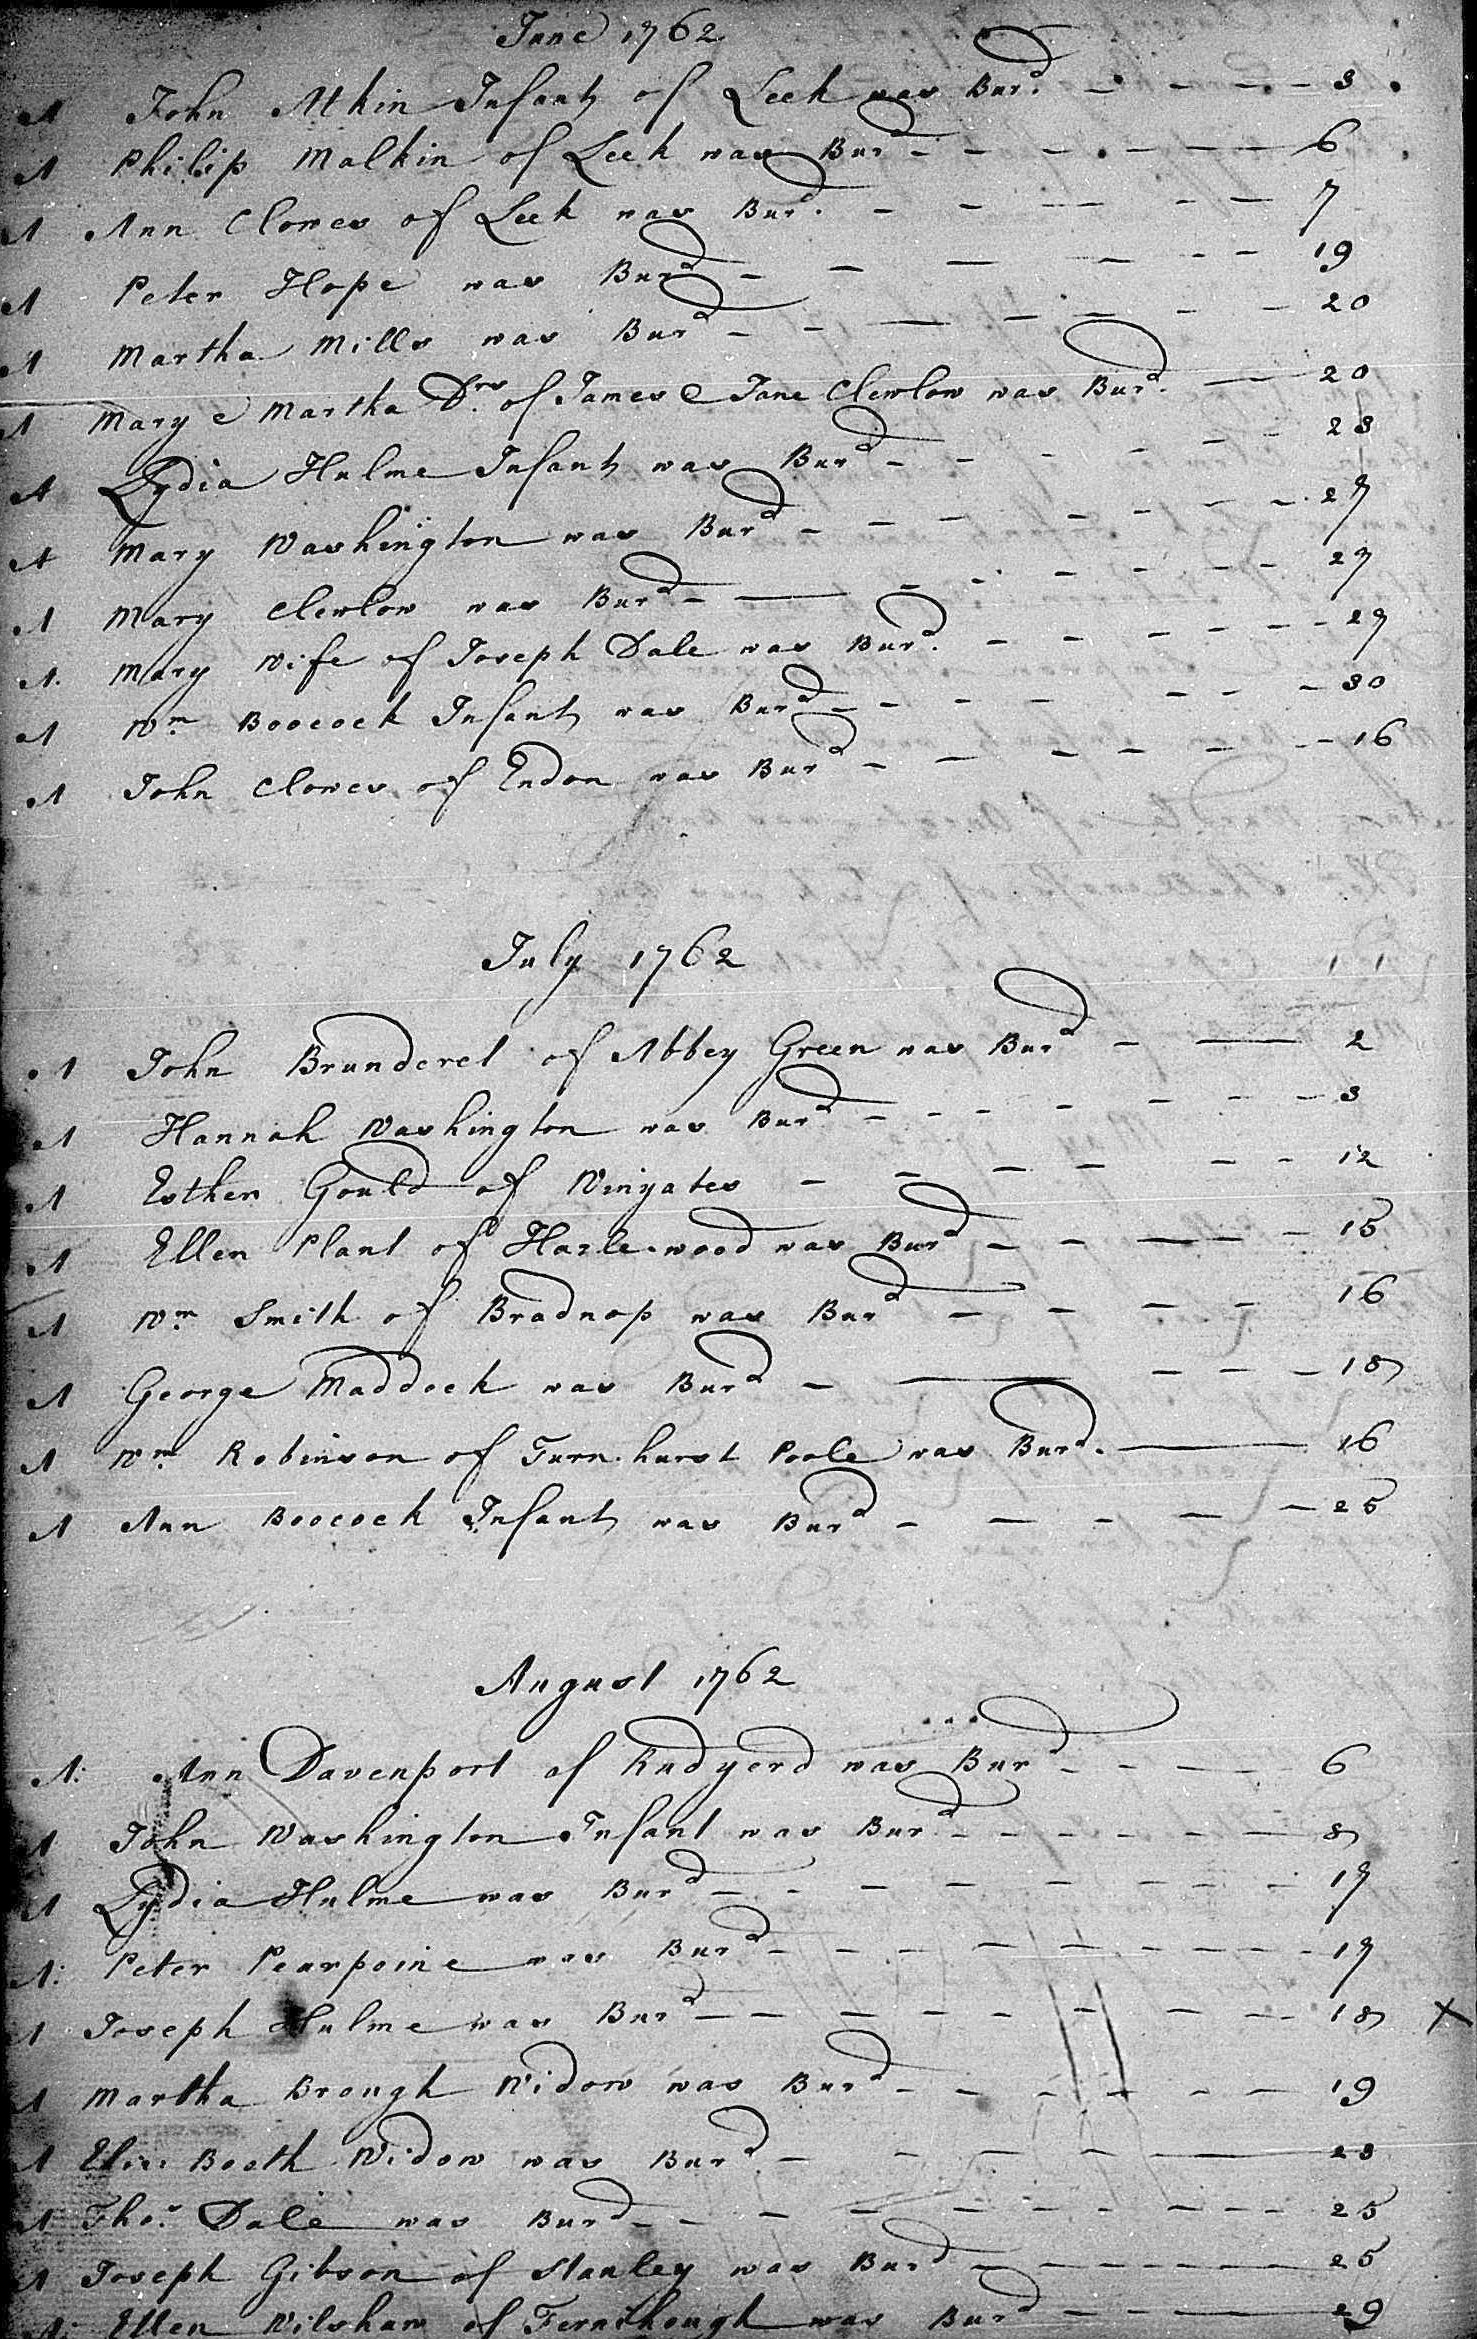 June 1762
A John Atkin Infant of Leek was Burd. - - - - 3
A Philip Malkin of Leek was Burd - - - - - - 6
A Ann Clowes of Leek was Burd. - - - - - 7
A Peter Hope was Burd - - - - - - 19
A Martha Mills was Burd - - - - - - - 20
A Mary & Martha Drs. of James & Jane Clewlow was Burd. - 20
A Lydia Hulme Infant was Burd - - - - - - 23
A Mary Washington was Burd - - - - - - - 27
A Mary Clewlow was Burd - - - - - - - - 27
A. Mary Wife of Joseph Dale was Burd. - - - - - - 27
A Wm. Boocock Infant was Burd - - - - - - 30
A John Clowes of Endon was Burd - - - - - - - 16
July 1762
A John Brunderel of Abbey Green was Burd - - 2
A Hannah Washington was Burd - - - - - - - 3
A Esther Gould of Winyates - - - - - - 12
A Ellen Plant of Hazle-wood was Burd - - - - - 15
A Wm. Smith of Bradnop was Burd - - - - 16
A George Maddock was Burd - - - - - 18
A Wm. Robinson of Turn-hurst Poole was Burd. - 16
A Ann Boocock Infant was Burd - - - - - 25
August 1762
A: Ann Davenport of Rudyerd was Burd - - - - - 6
A John Washington Infant was Burd - - - - - - 8
A Lydia Hulme was Burd - - - - - - - - 17
A: Peter Pearpoine was Burd - - - - - - - - - 17
A Joseph Hulme was Burd - - - - - - - - 18 X
A Martha Brough Widow was Burd - - - - - - 19
A Eliz: Booth Widow was Burd - - - - - 23
A Thos. Dale was Burd - - - - - - - - - 25
A Joseph Gibson of Stanley was Burd - - - - - - - 25
A: Ellen Wilshaw of Fernihough was Burd - - - 29